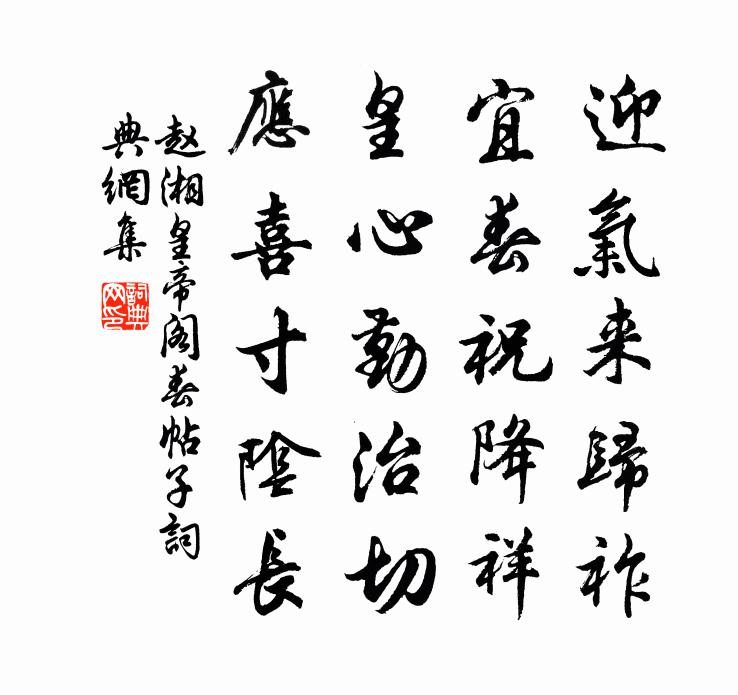 迎氣来歸祚
宜春祝降祥
皇心勤治切
應喜寸陰長
赵湘皇帝閣春帖子詞
典網集
詞典網印